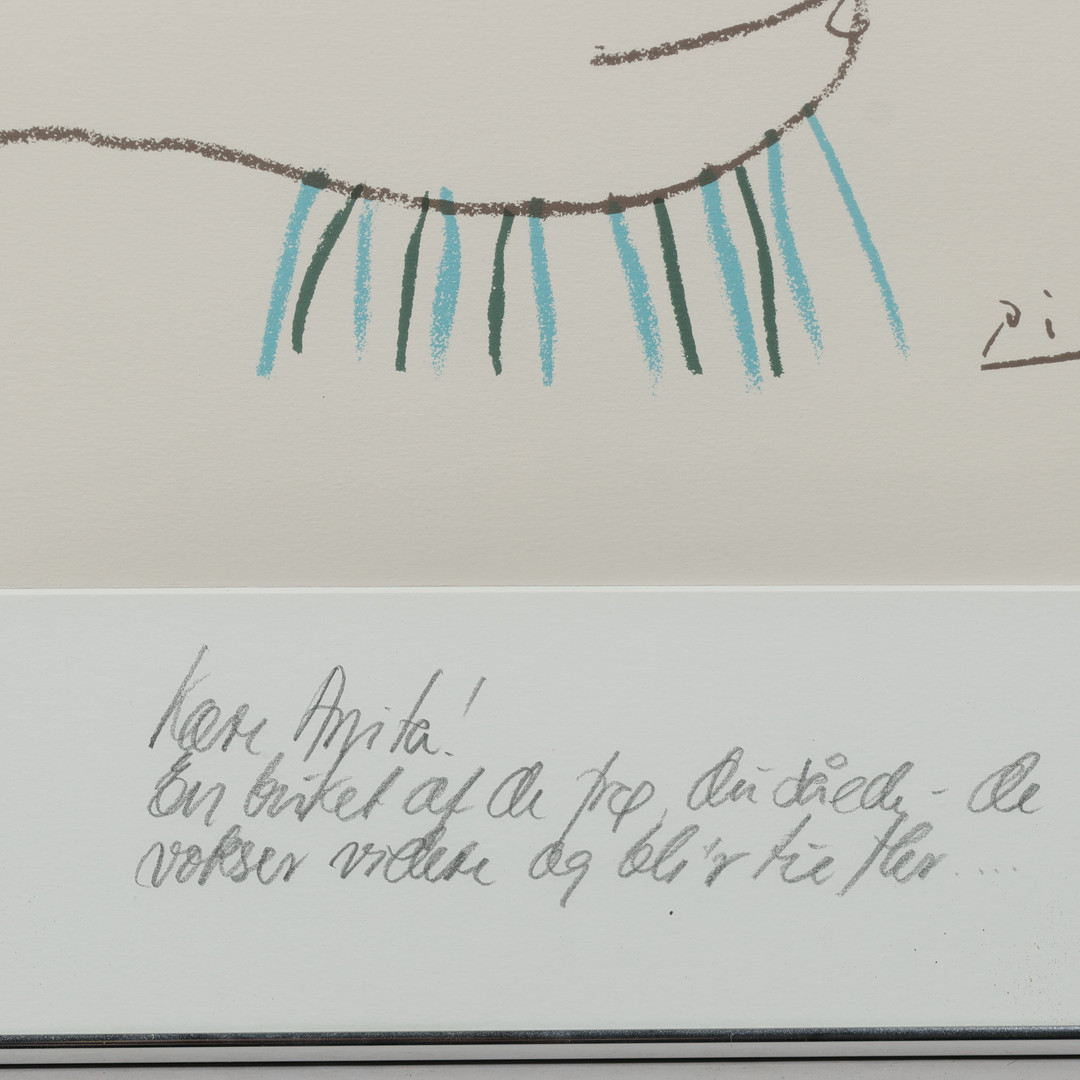 pi
Kære Anita!
En buket af de frø, du såede - de
vokser videre og bli'r til fler.....